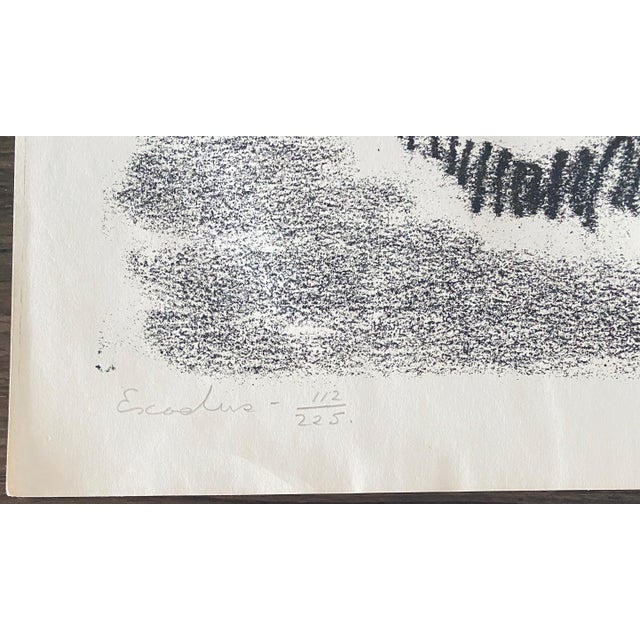 Escodus - 112/225.